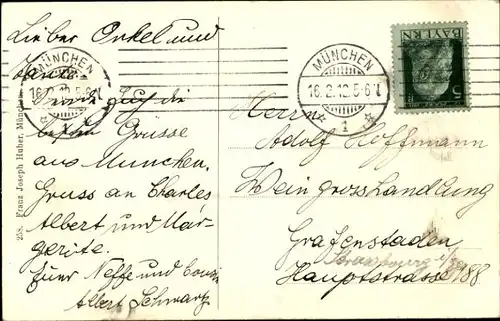 Lieber Onkel und
Tante
MÜNCHEN
16.2.12.5-6N.
die
besten Grüsse
aus München.
Gruss an Charles,
Albert und Mar-
gerite.
Neffe und
Albert Schwarz
258. Franz Joseph Huber, München
MÜNCHEN
16.2.12.5-6N.
1
BAYERN
5
Herrn
Adolf Hoffmann
Weingrosshandlung
Grafenstaden
Hauptstrasse 188.